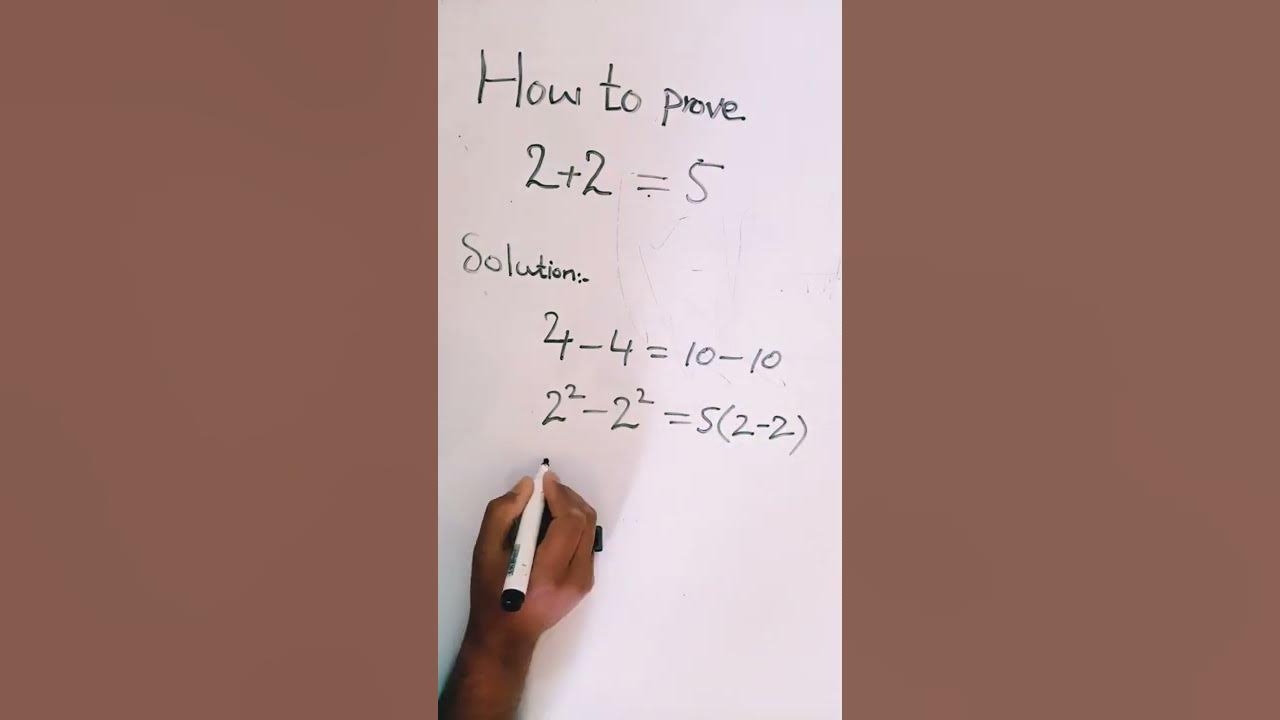 How to prove
2+2 = 5
Solution:-
4-4 = 10-10
2²-2² = 5(2-2)